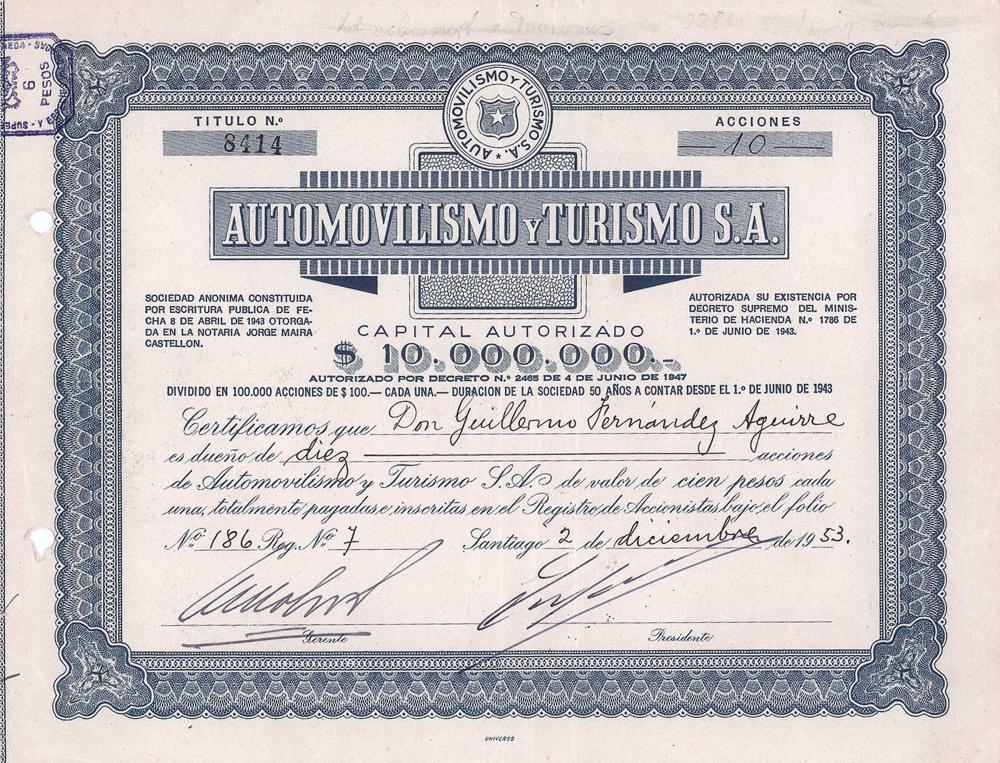 6
PESOS
AUTOMOVILISMO Y TURISMO S.A.
TITULO N.º
8414
ACCIONES
10
AUTOMOVILISMO Y TURISMO S.A.
SOCIEDAD ANONIMA CONSTITUIDA
POR ESCRITURA PUBLICA DE FE-
CHA 8 DE ABRIL DE 1943 OTORGA-
DA EN LA NOTARIA JORGE MAIRA
CASTELLON.
AUTORIZADA SU EXISTENCIA POR
DECRETO SUPREMO DEL MINIS-
TERIO DE HACIENDA N.º 1786 DE
1.º DE JUNIO DE 1943.
CAPITAL AUTORIZADO
$ 10.000.000.-
AUTORIZADO POR DECRETO N.º 2465 DE 4 DE JUNIO DE 1947
DIVIDIDO EN 100.000 ACCIONES DE $ 100.— CADA UNA.— DURACION DE LA SOCIEDAD 50 AÑOS A CONTAR DESDE EL 1.º DE JUNIO DE 1943
Certificamos que Don Guillermo Fernández Aguirre
es dueño de diez acciones
de Automovilismo y Turismo S.A. de valor de cien pesos cada
una, totalmente pagadas e inscritas en el Registro de Accionistas bajo el folio
Nº 186 Reg. Nº 7 Santiago 2 de diciembre de 1953.
Gerente Presidente
UNIVERSO